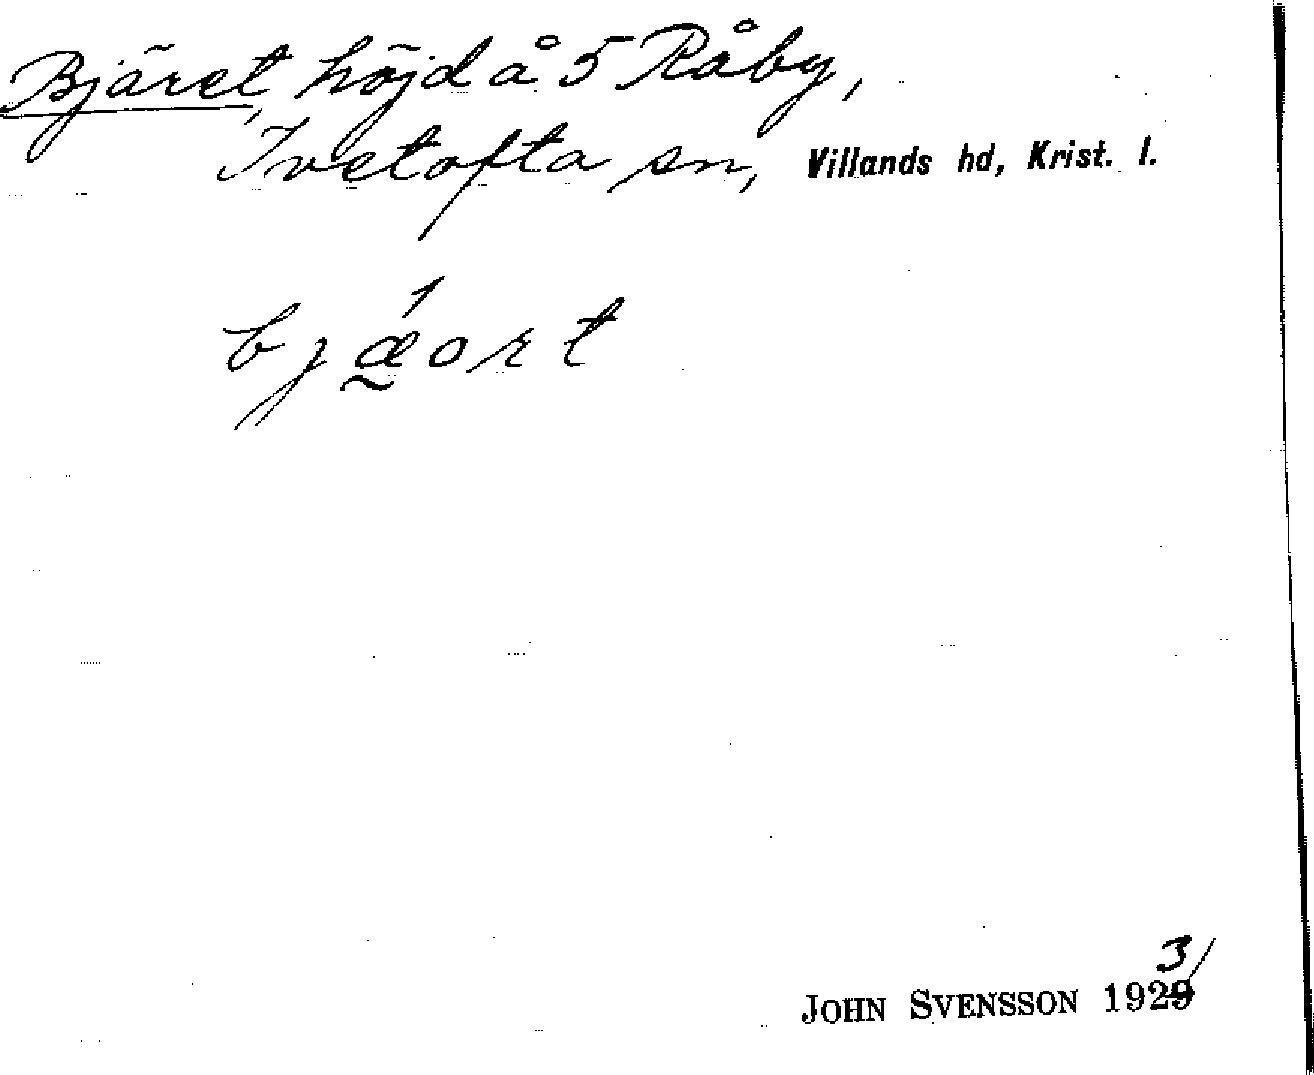 Bjäret, höjd å 5 Råby,
Ivetofta sn, Villands hd, Krist. l.
bjǽort
3/
JOHN SVENSSON 1929